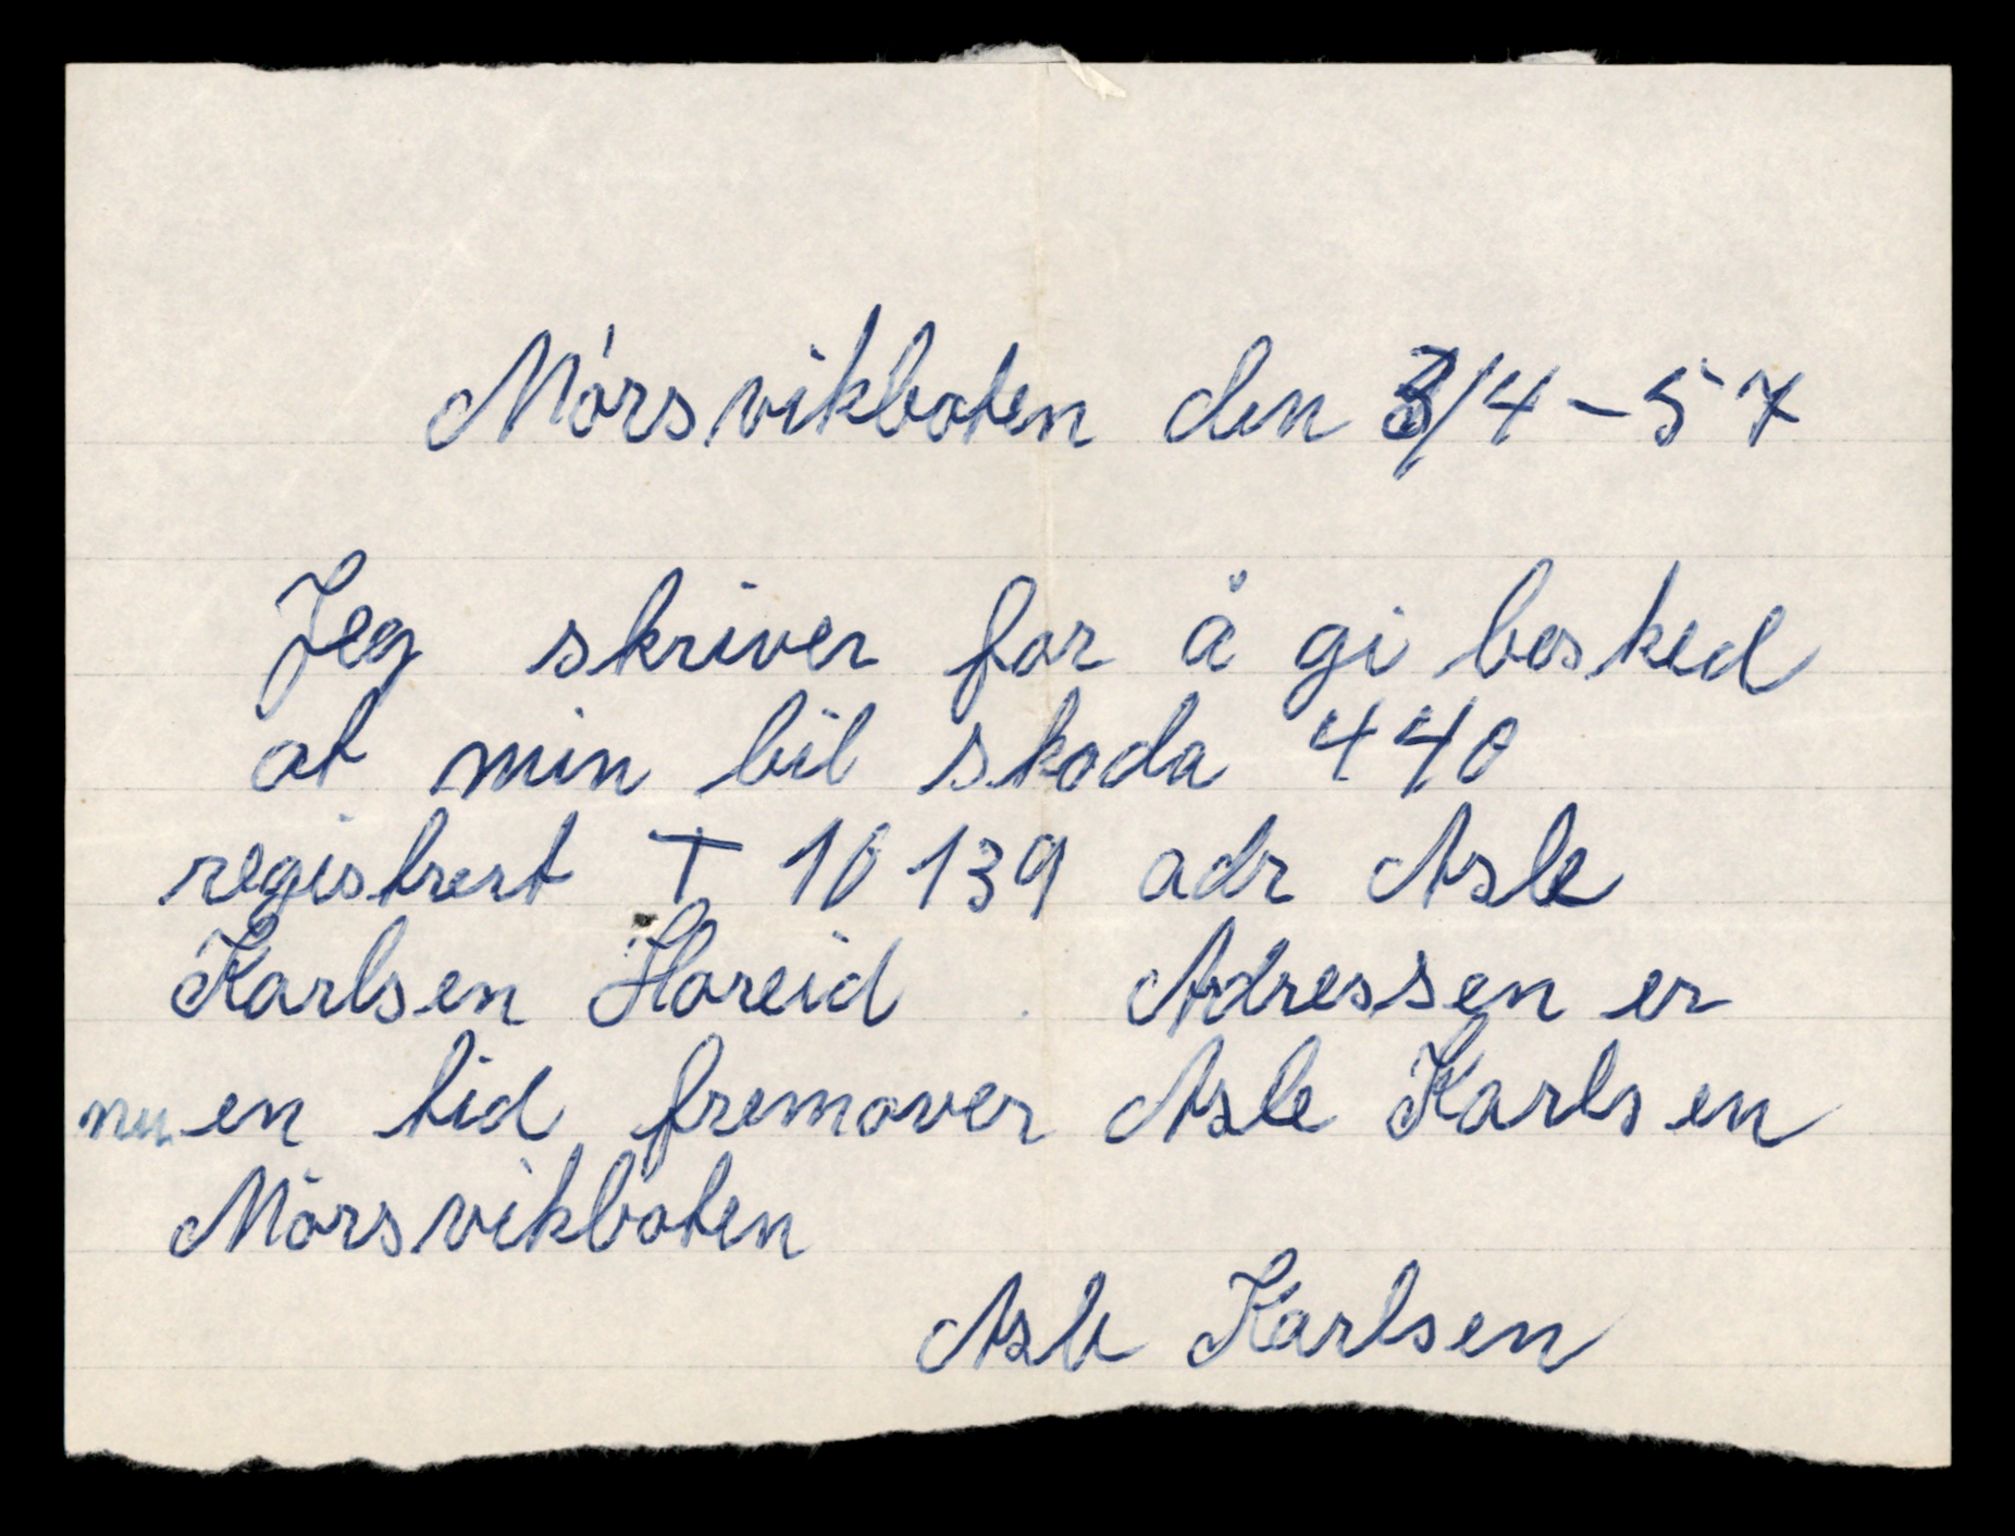 Mørsvikboten den 3/4-57
Jeg skriver for å gi besked
at min bil skoda 440
registrert T 10139 adr Asle
Karlsen Hareid. Adressen er
nu en tid fremover Asle Karlsen
Mørsvikboten
Asle Karlsen